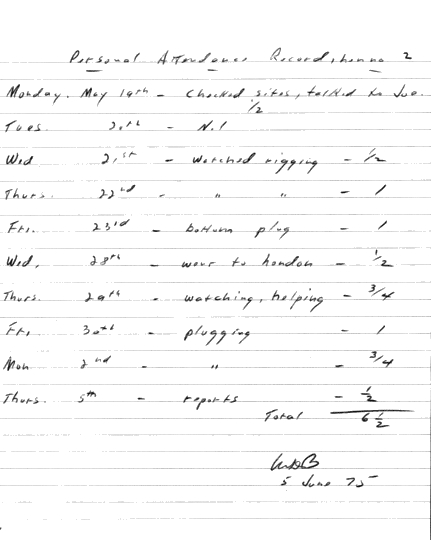 Personal Attendance Record, henna 2
Monday. May 19th - Checked sites, talked to Joe.
1/2
Tues. 20th - N.1
Wed 21st - watched rigging - 1/2
Thurs. 22nd - " " - 1
Fri. 23rd - bottom plug - 1
Wed. 28th - wear to hondon - 1/2
Thurs. 29th - watching, helping - 3/4
Fri, 30th - plugging - 1
Mon 2nd - " - 3/4
Thurs. 5th - reports - 1/2
Total 6 1/2
5 June 75